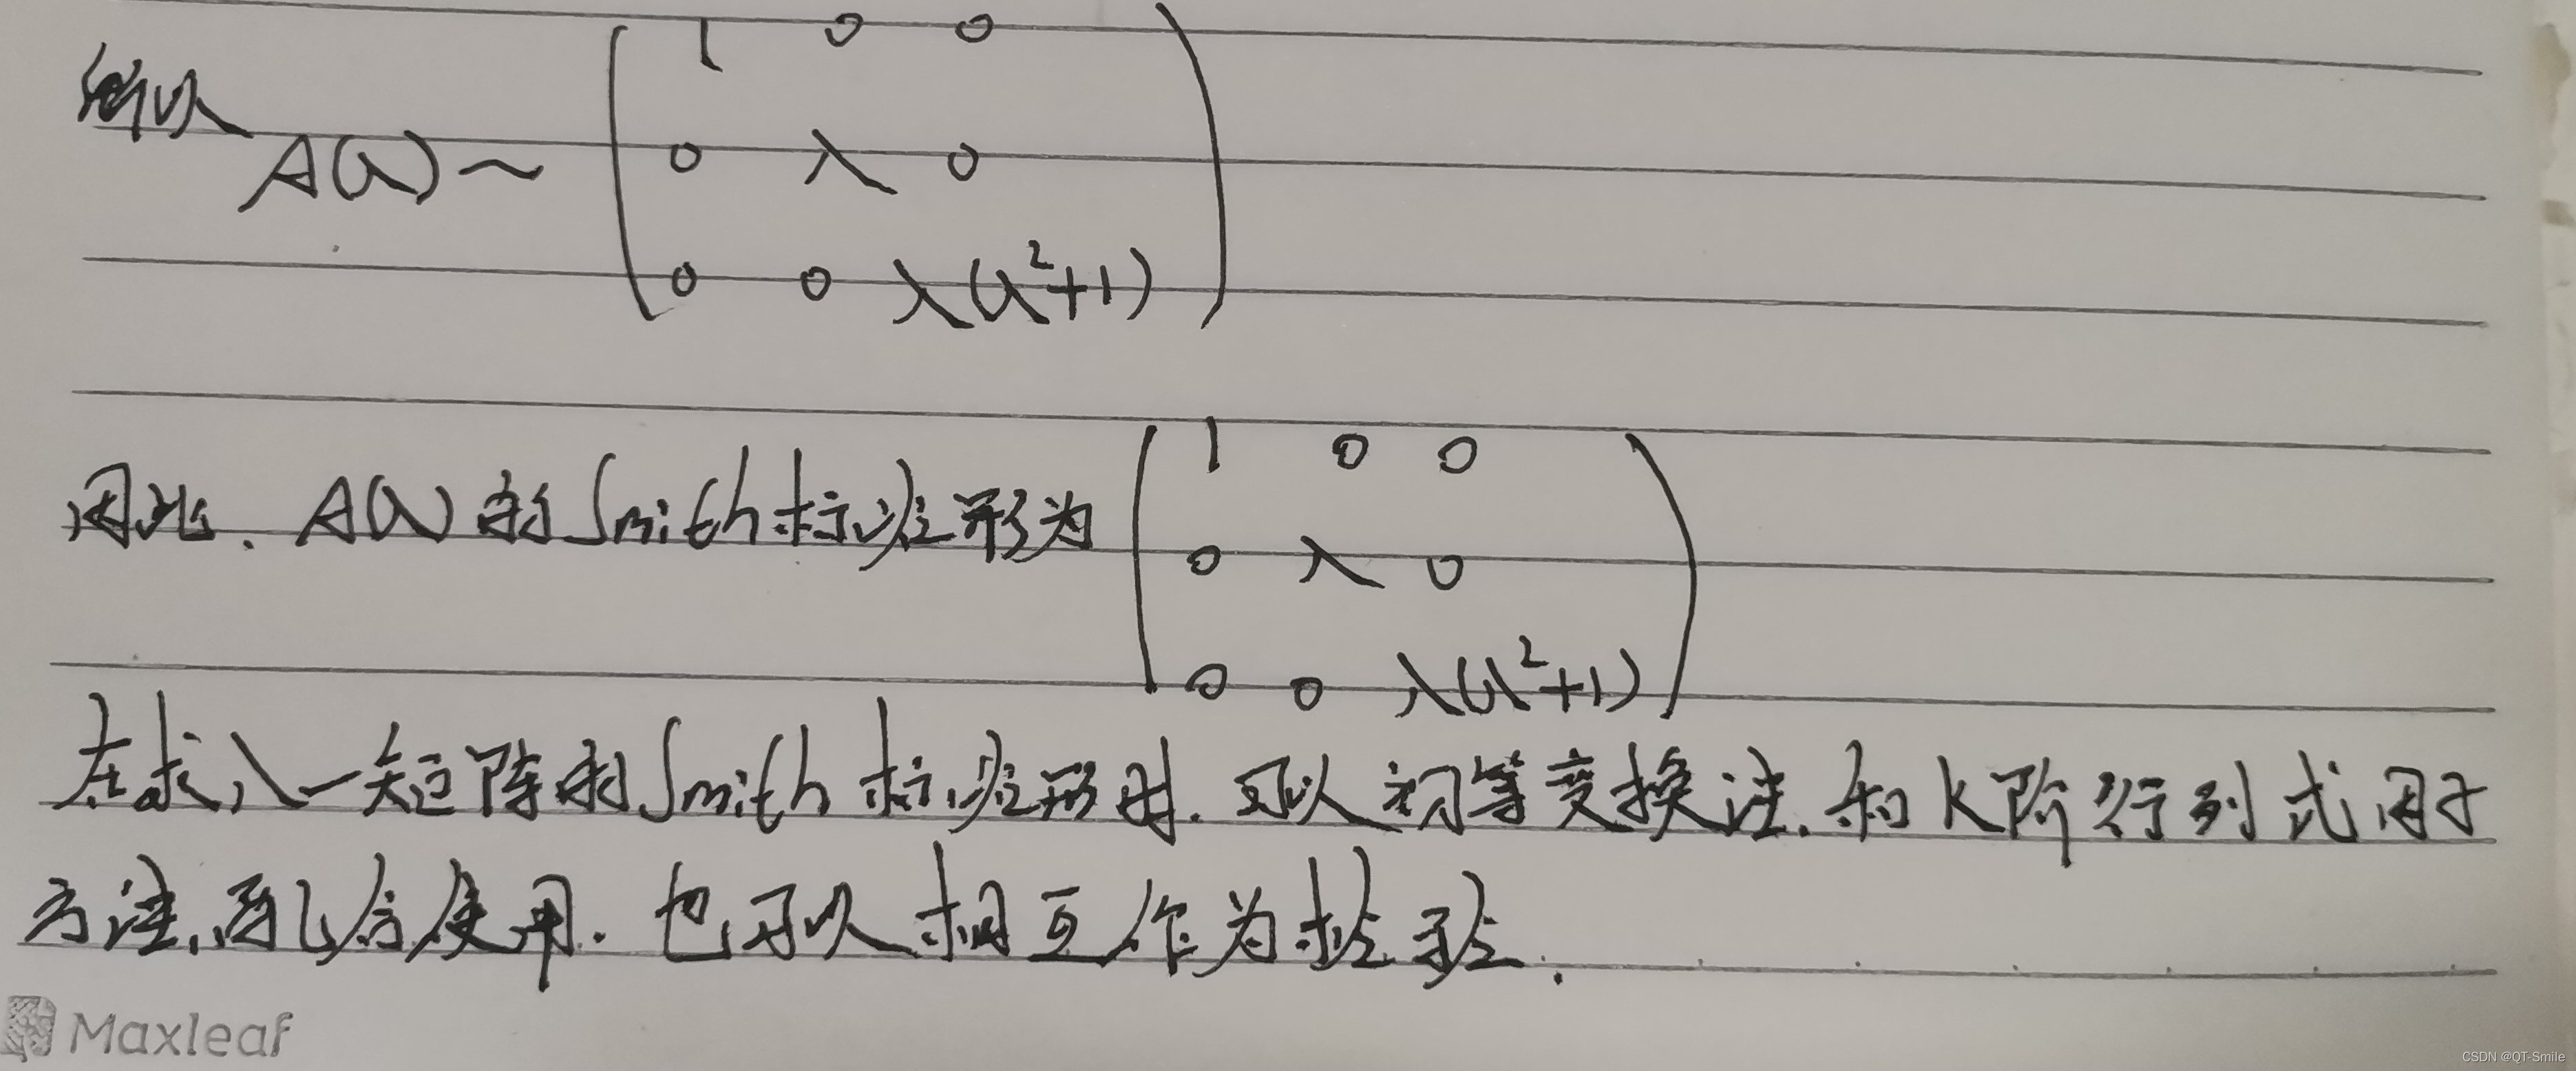 1 0 0
所以 A(λ) ~ 0 λ 0
0 0 λ(λ²+1)
1 0 0
因此. A(λ) 的 Smith 标准形为 0 λ 0
0 0 λ(λ²+1)
在求λ-矩阵的Smith 标准形时. 可以初等变换法. 和 K阶行列式因子
方法, 配合使用. 也可以相互作为检验.
Maxleaf
CSDN @QT-Smile